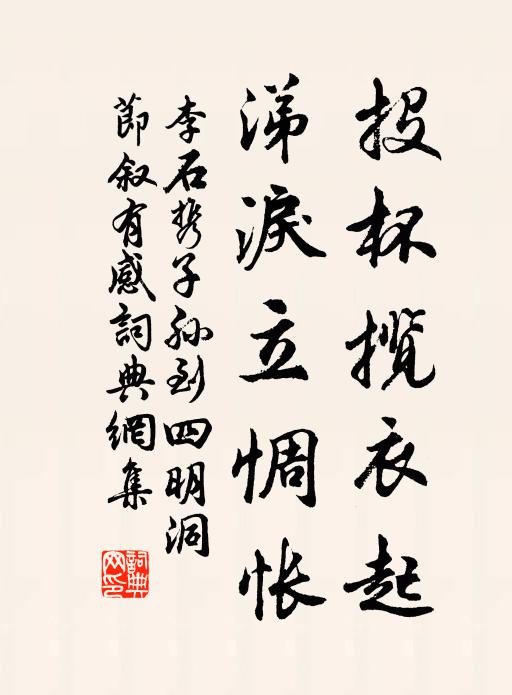 投杯揽衣起
涕淚立惆怅
李石携子孙到四明洞
節叙有感詞典網集
詞典
网印